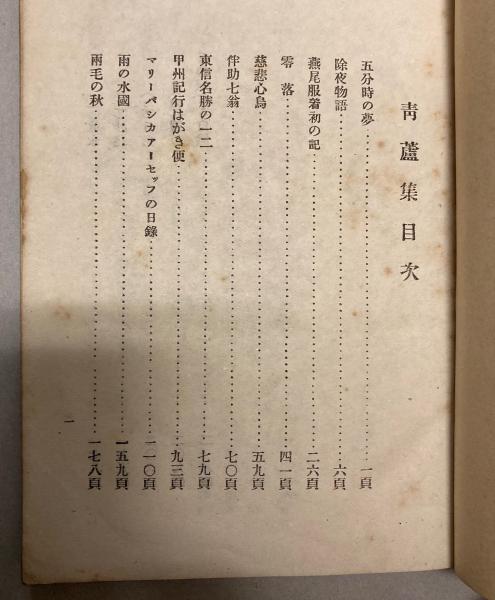 青蘆集目次
五分時の夢……一頁
除夜物語……六頁
燕尾服着初の記……二六頁
零落……四一頁
慈悲心鳥……五九頁
伴助七翁……七〇頁
東信名勝の一二……七九頁
甲州記行はがき便……九三頁
マリーバシカアーセッフの日錄……一一〇頁
雨の水國……一五九頁
兩毛の秋……一七八頁
一